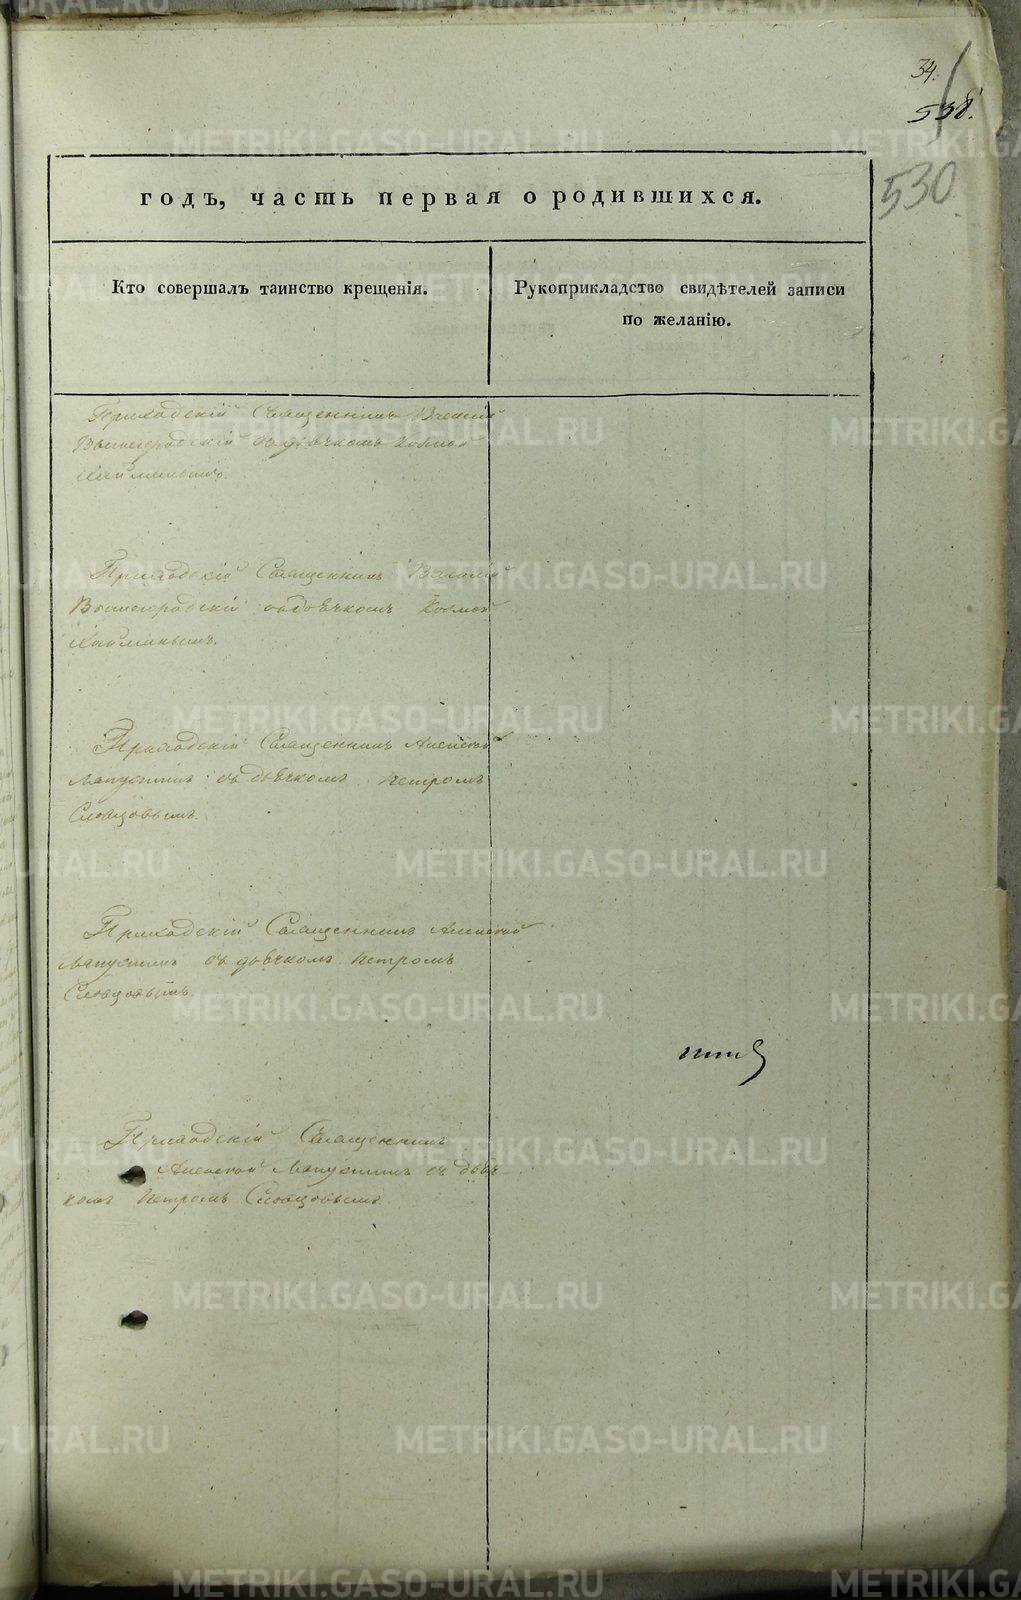 34.
538.
530
годъ, часть первая о родившихся.
Кто совершалъ таинство крещенія.
Рукоприкладство свидѣтелей записи
по желанію.
Приходскій Священникъ
Вышегородскій съ дьячкомъ Козмою
Приходскій Священникъ Василій
Вышегородскій съ дьячкомъ Козмой
Приходскій Священникъ Алексѣй
Лапустинъ съ дьячкомъ Петромъ
Словцовымъ.
Приходскій Священникъ Алексѣй
Лапустинъ съ дьячкомъ Петромъ
Словцовымъ.
Приходскій Священникъ
Алексѣй Лапустинъ съ дьяч-
комъ Петромъ Словцовымъ.
METRIKI.GASO-URAL.RU